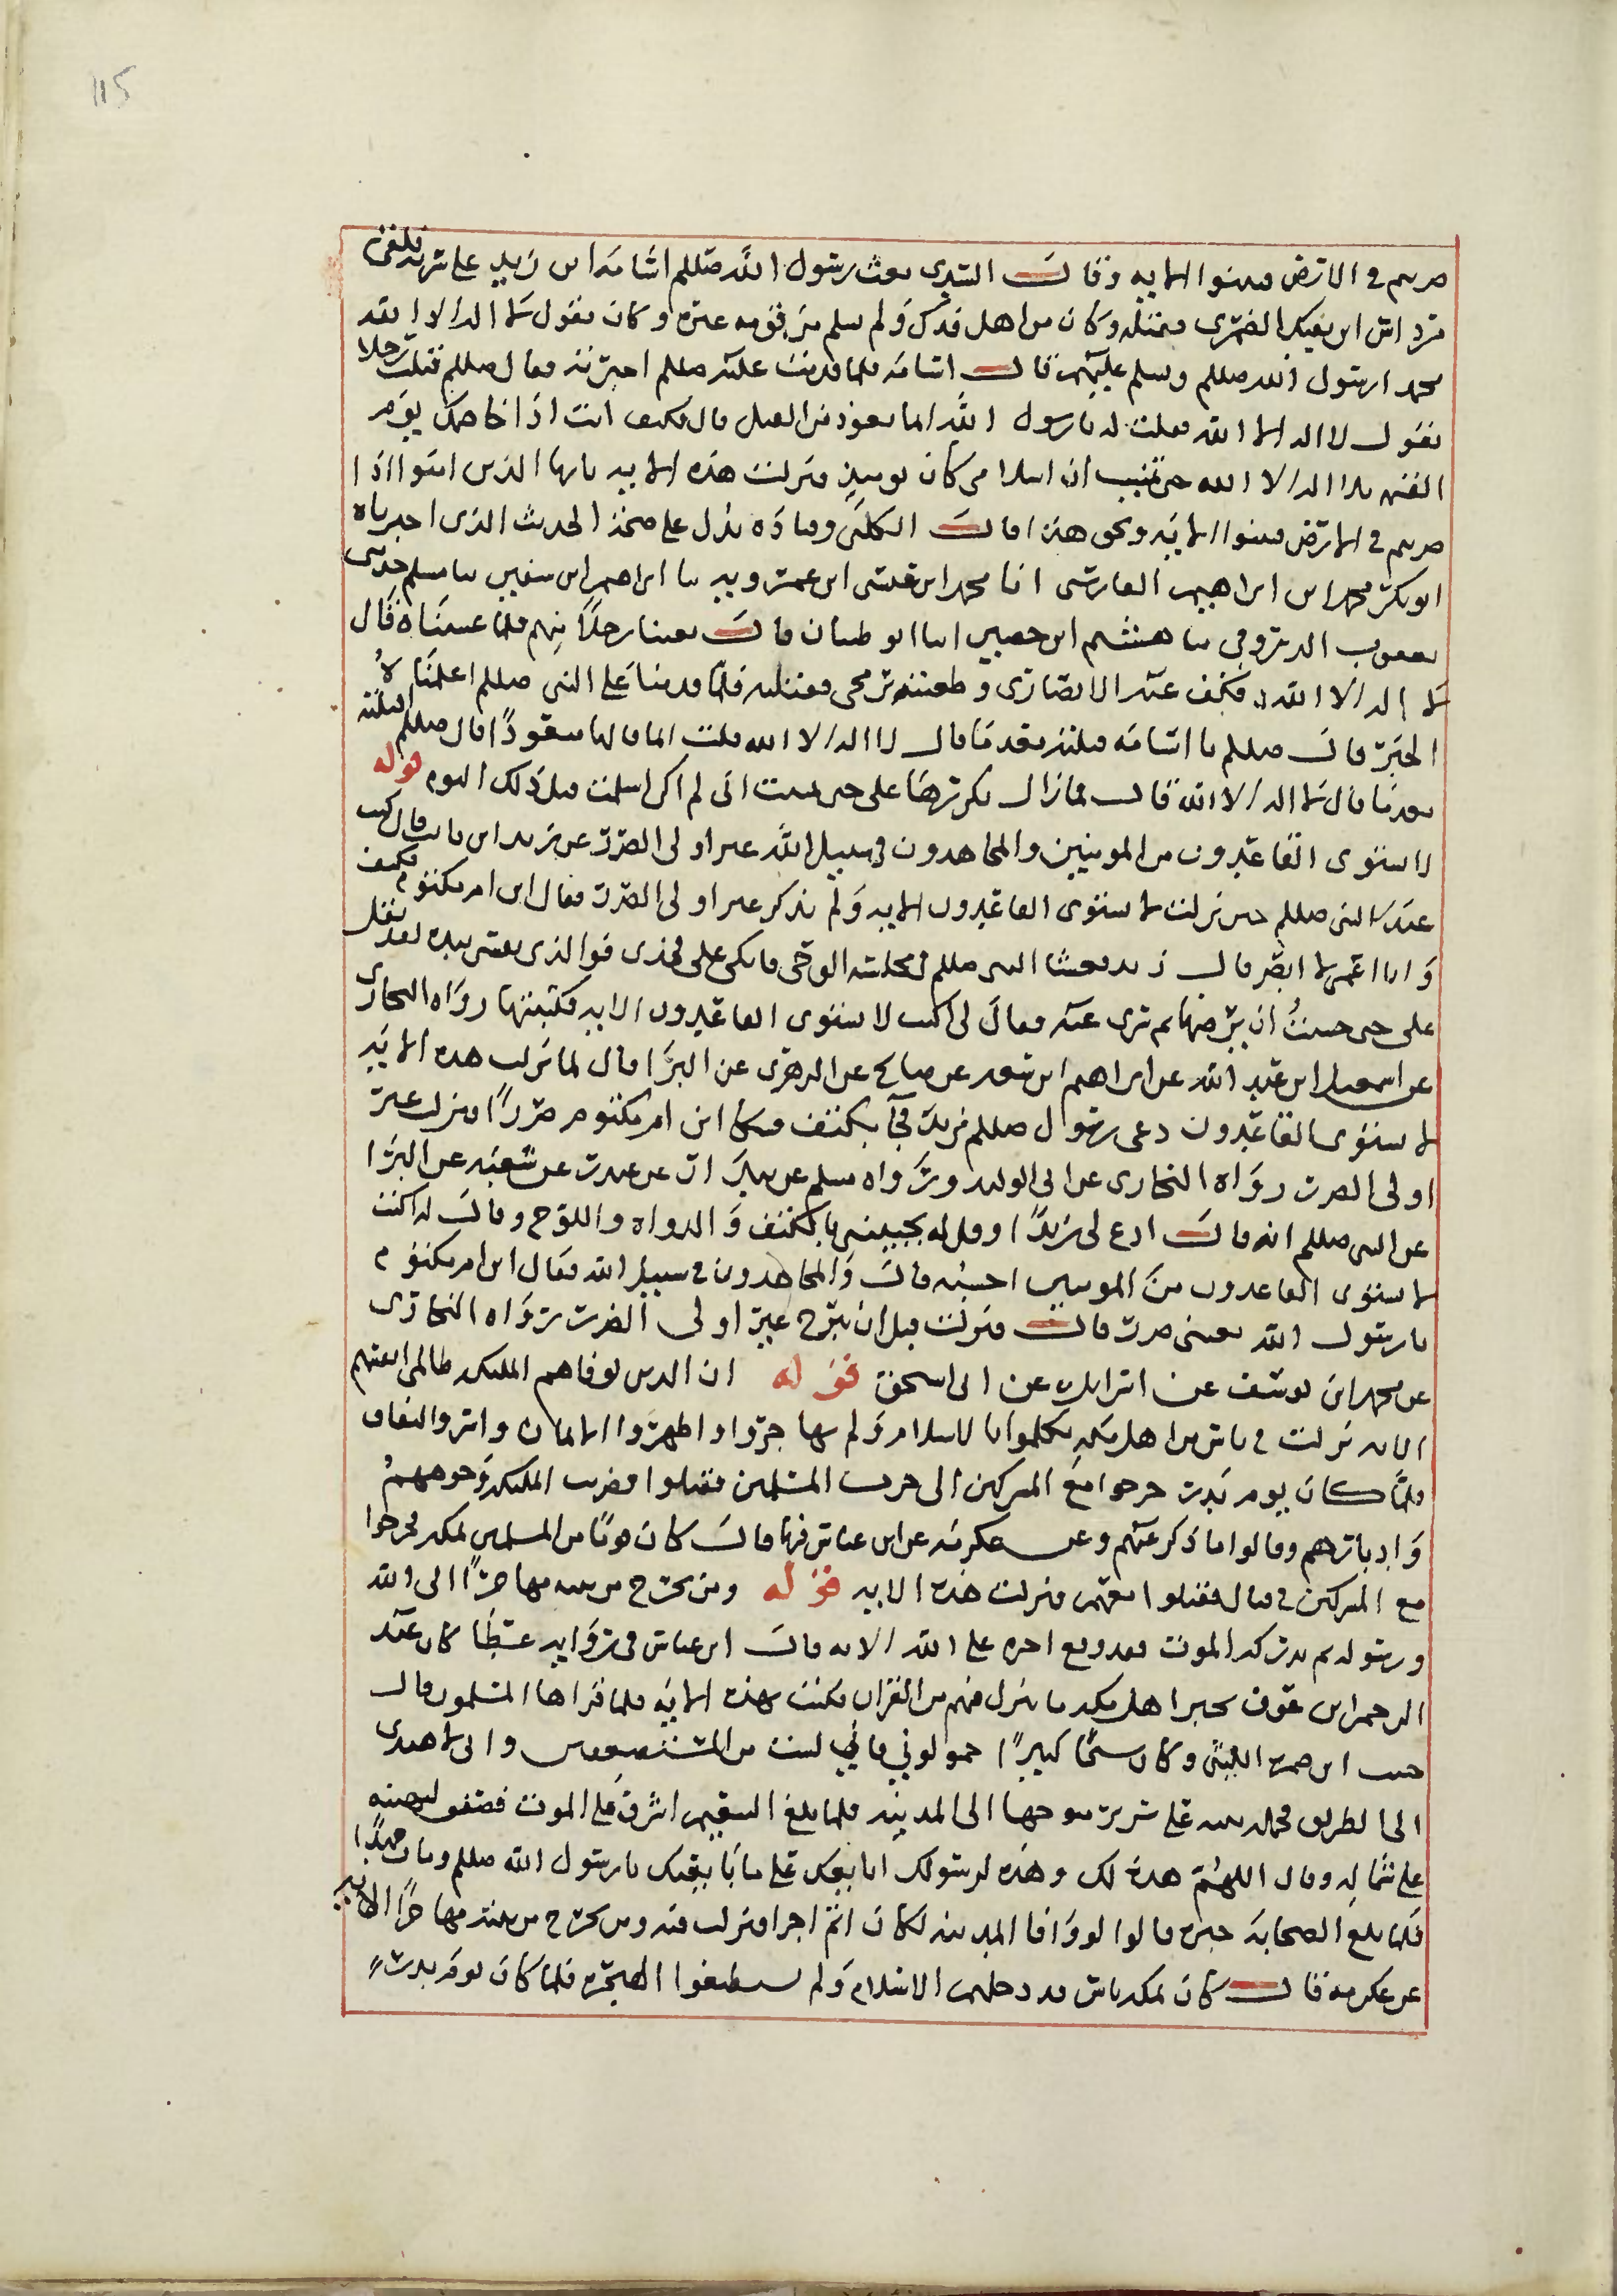 115
ضربتم في الارض فتبينوا الايه وقال السدي بعث رسول الله صللم اسامه ابن زيد على سريه فلقى
مرداس ابن نهيك الضمرى فقتله وكان من اهل فدك ولم يسلم من قومه غيره وكان يقول لا اله الا الله
محمد ارسول الله صللم ويسلم عليهم قال اسامه فلما قدمت عليه صللم اخبرته فقال صللم قتلت رجلا
يقول لا اله الا الله فقلت له يارسول الله انما تعوذ من القتل قال فكيف انت اذا خاصمك يوم
القيمه بلا اله الا الله حتى تمنيت ان اسلامى كان يوميذ فنزلت هذه الايه يايها الذين امنوا اذا
ضربتم في الارض فتبينوا الايه ونحو هذا قال الكلبى وقتاده يدل على صحته الحديث الذى اخبرناه
ابو بكر محمد ابن ابراهيم الفارسى انا محمد ابن عيسى ابن عمرويه نا ابراهيم ابن سفين نا مسلم حدثنى
يعقوب الدورقي نا هشيم ابن حصين انا ابو ظبيان قال لعينا رجلاً منهم فلما غشيناه قال
لا اله الا الله فكف عنه الانصارى وطعنته برمحى فقتلته فلما قدمنا على النبى صللم اعلمناه
الخبر قال صللم يا اسامه قتلته بعدما قال لا اله الا الله قلت انما قالها متعوذًا قال صللم اقتلته
بعدما قال لا اله الا الله قال فمازال يكررها على حتى تمنيت انى لم اكن اسلمت قبل ذلك اليوم قوله
لا يستوى القاعدون من المومنين والمجاهدون في سبيل الله غير اولى الضرر عن زيد ابن ثابت قال كنت
عند النبى صللم حين نزلت لا يستوى القاعدون الايه ولم يذكر غير اولى الضرر فقال ابن ام مكتوم فكيف
وانا اعمى لا ابصر قال زيد فغشا النبى صللم في مجلسه الوحى فاتكى على فخذى فوالذى نفسى بيده لقد ثقل
على حتى خشيتُ ان يرضها ثم سرى عنه فقال لى اكتب لا يستوى القاعدون الايه فكتبتها رواه البخارى
عن اسمعيل ابن عبد الله عن ابراهيم ابن سعد عن صالح عن الزهرى عن البرا قال لما نزلت هذه الايه
لا يستوى القاعدون دعى رسول صللم زيدًا فجآ بكتف وشكا ابن ام مكتوم ضررًا فنزلت غير
اولى الضرر رواه البخارى عن ابى الوليد ورواه مسلم عن بندار عن غندر عن شعبه عن البرا
عن النبى صللم انه قال ادع لى زيدًا وقل له يجيىنى بالكتف والدواه واللوح وقال له اكتب
لا يستوى القاعدون من المومنين احسبه قال والمجاهدون في سبيل الله فقال ابن ام مكتوم
يارسول الله بعينى ضرر قال فنزلت قبل ان يبرح غير اولى الضرر رواه البخارى
عن محمد ابن يوسف عن اسرايل عن ابى اسحق قوله ان الذين توفاهم المليكه ظالمى انفسهم
الايه نزلت في ناس من اهل مكه تكلموا بالاسلام ولم يهاجروا واظهروا الايمان واسروا النفاق
فلما كان يوم بدر خرجوا مع المشركين الى حرب المسلمين فقتلوا فضربت المليكه وجوههمْ
وادبارهم وقالوا ما ذكر عنهم وعن عكرمه عن ابن عباس فيها قال كان قومًا من المسلمين بمكه فخرجوا
مع المشركين في قتال فقتلوا معهم فنزلت هذه الايه قوله ومن يخرج من بيته مهاجرًا الى الله
ورسوله ثم يدركه الموت فقد وقع اجره على الله الايه قال ابن عباس في روايه عطا كان عبد
الرحمن ابن عوف يخبر اهل مكه ما ينزل فيهم من القران فكتب بهذه الايه فلما قراها المسلمون قال
حبيب ابن ضمره الليثى وكان شيخًا كبيرًا احملونى فانى لست من المستضعفين وانى لا اهتدى
الى الطريق فحمله بنيه على سرير متوجها الى المدينه فلما بلغ التنعيم اشرف على الموت فصفق بيمينه
على شماله وقال اللهم هذه لك وهذه لرسولك ابايعك على ما بايعك يارسول الله صللم ومات حميدًا
فلما بلغ الصحابه خبره قالوا لو وافا المدينه لكان اتم اجرا فنزلت فيه ومن يخرج من بيته مهاجرًا الايه
عن عكرمه قال كان بمكه ناس قد دخلهم الاسلام ولم يستطيعوا الهجره فلما كان يوم بدر